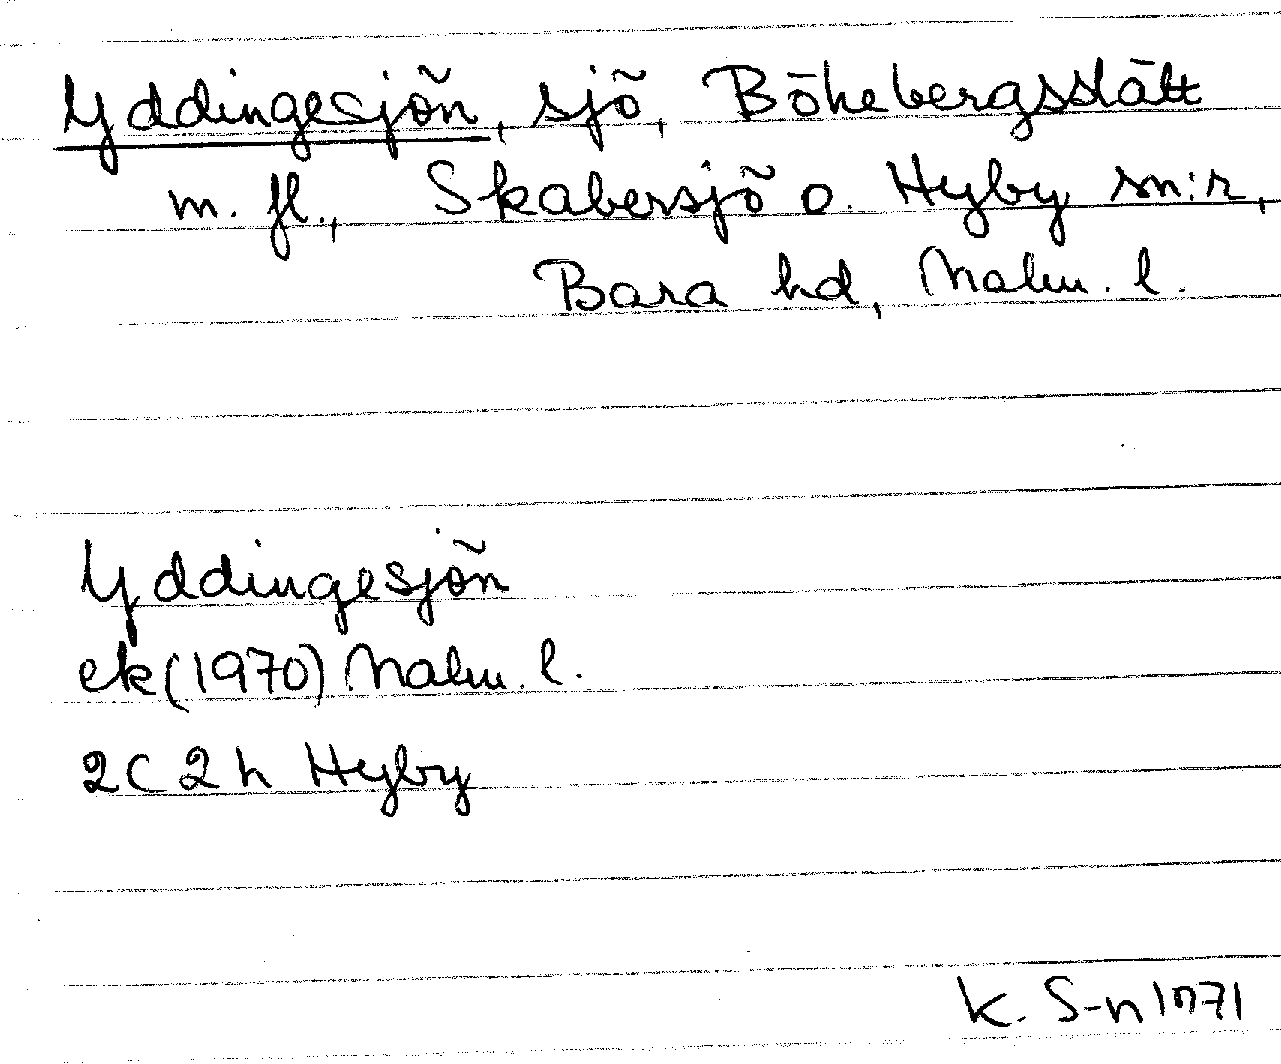 Yddingesjön, sjö, Bökebergsslätt
m. fl., Skabersjö o. Hyby sn:r,
Bara hd, Malm. l.
Yddingesjön
ek (1970) Malm. l.
2C 2h Hyby
K. S-n 1971